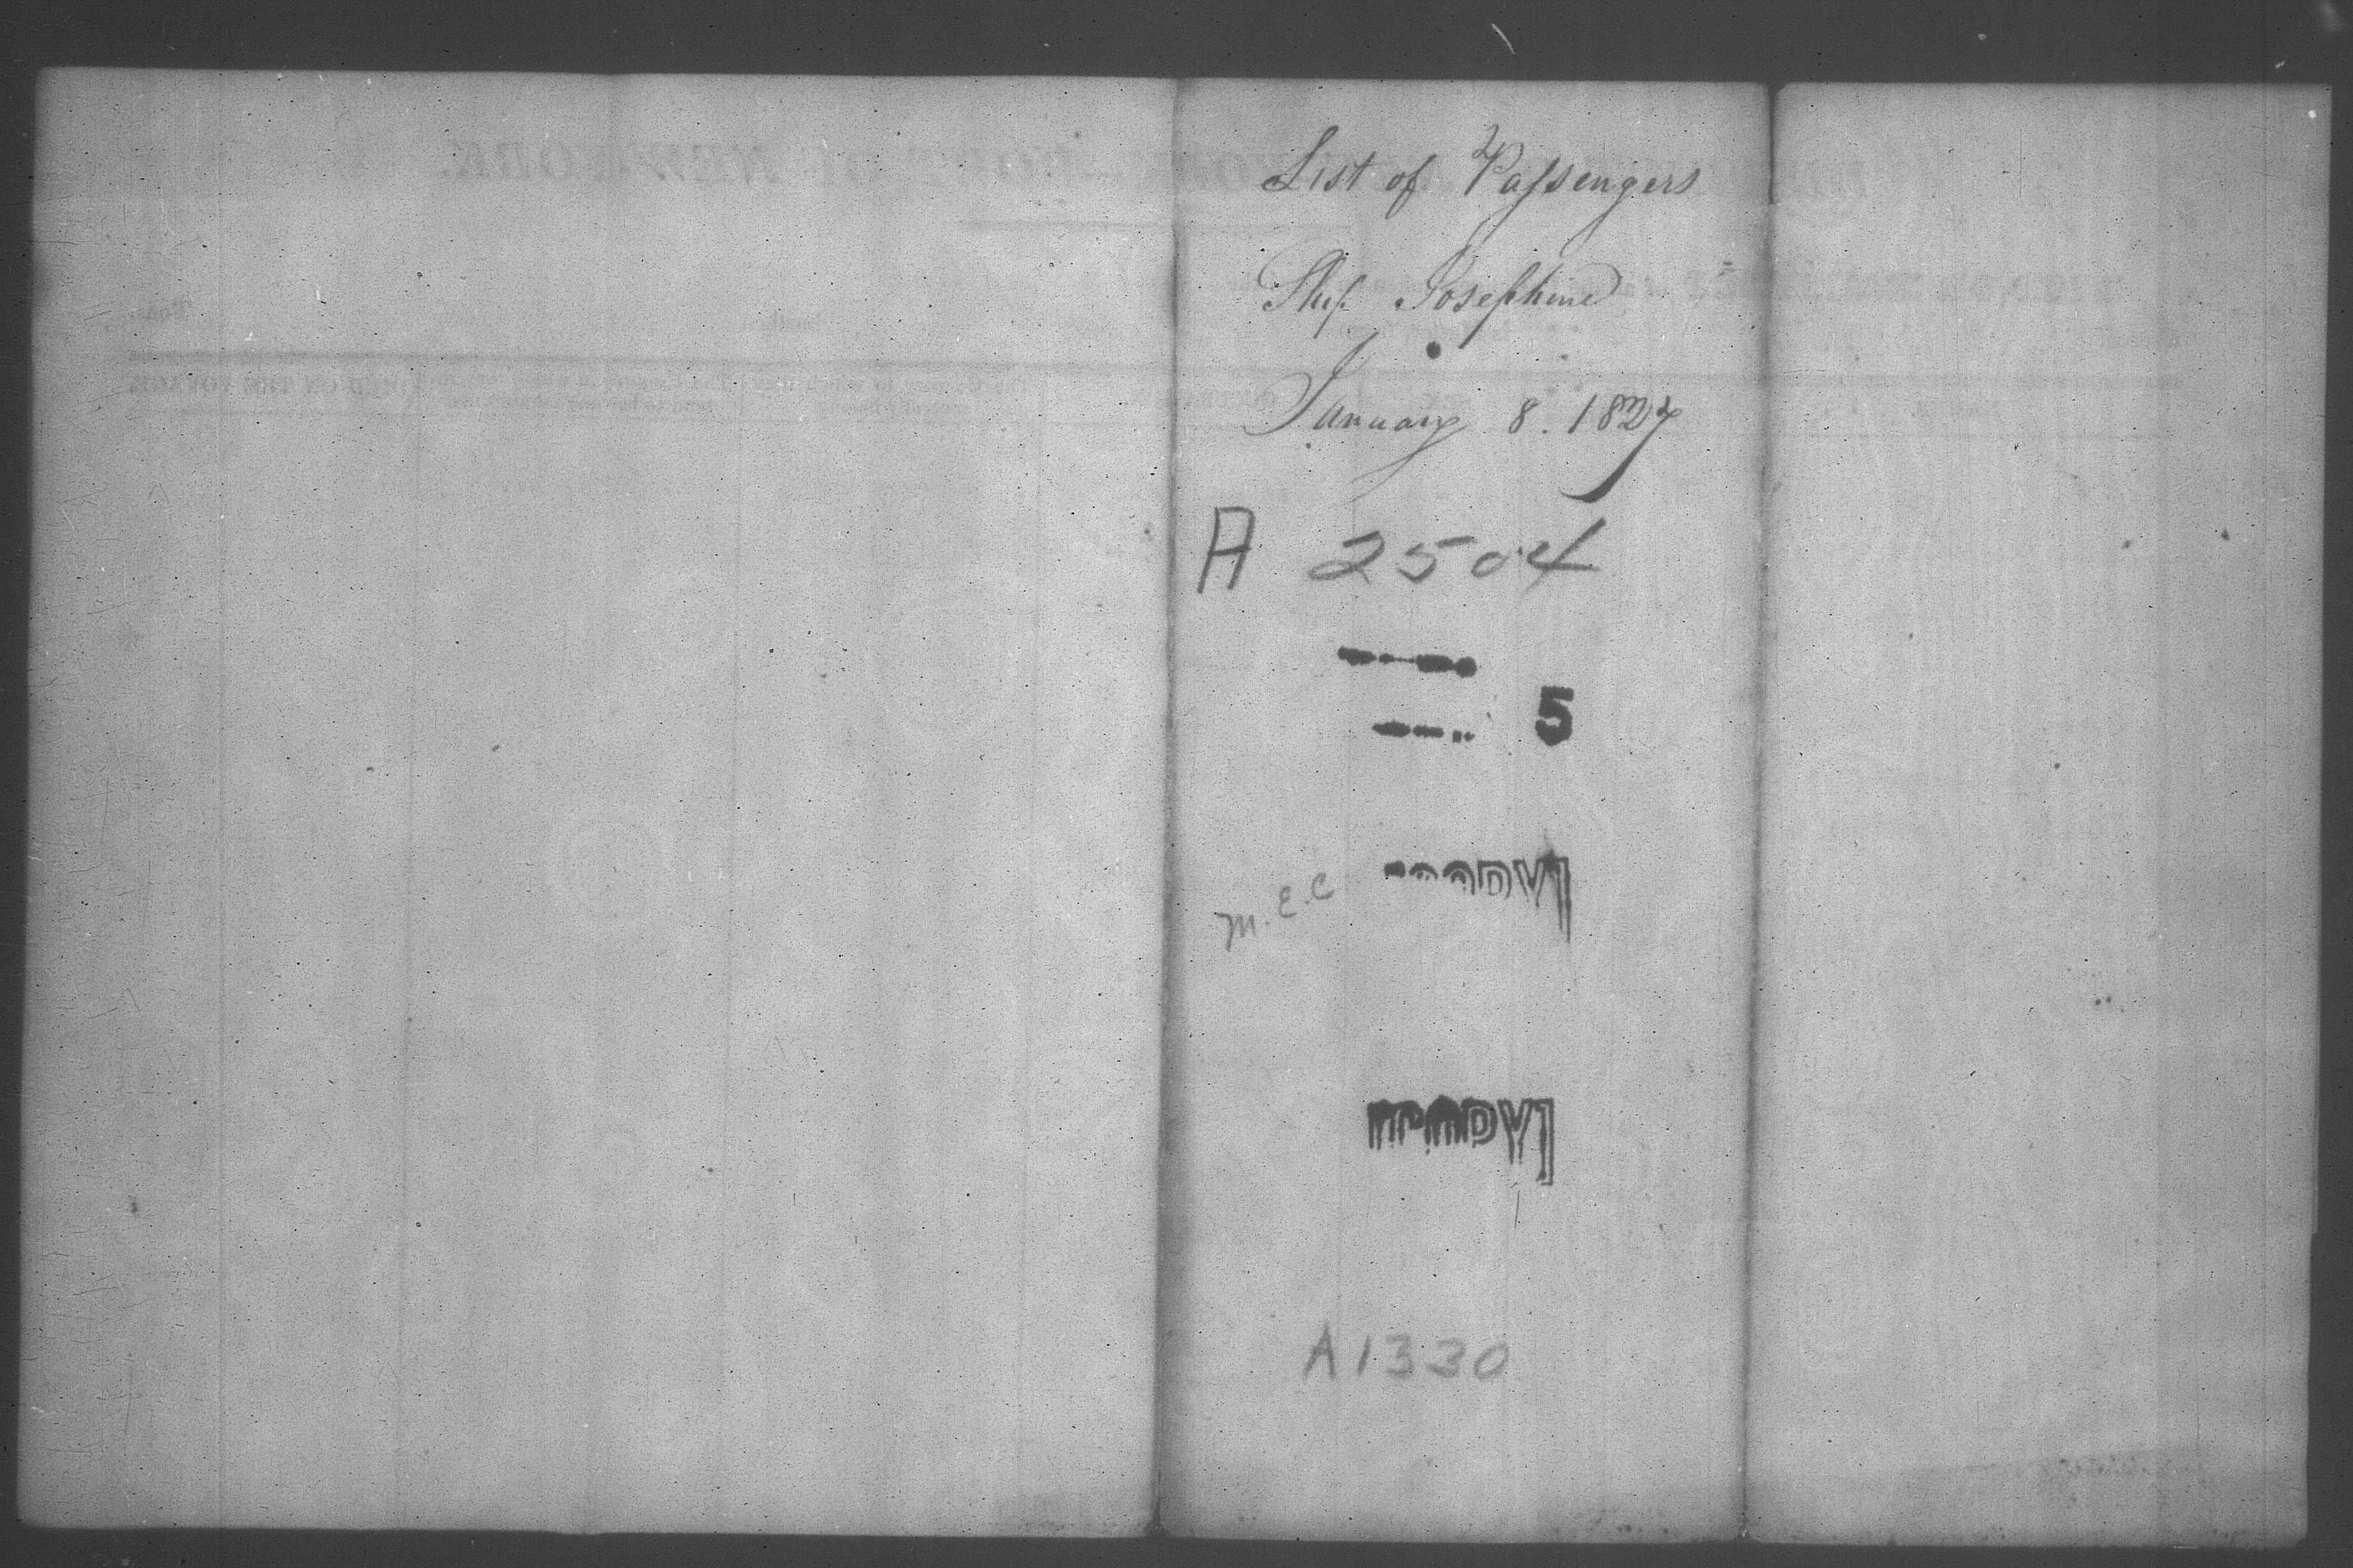 List of Passengers
Ship Josephine
January 8. 1827
A 2504
5
M.E.C
A1330